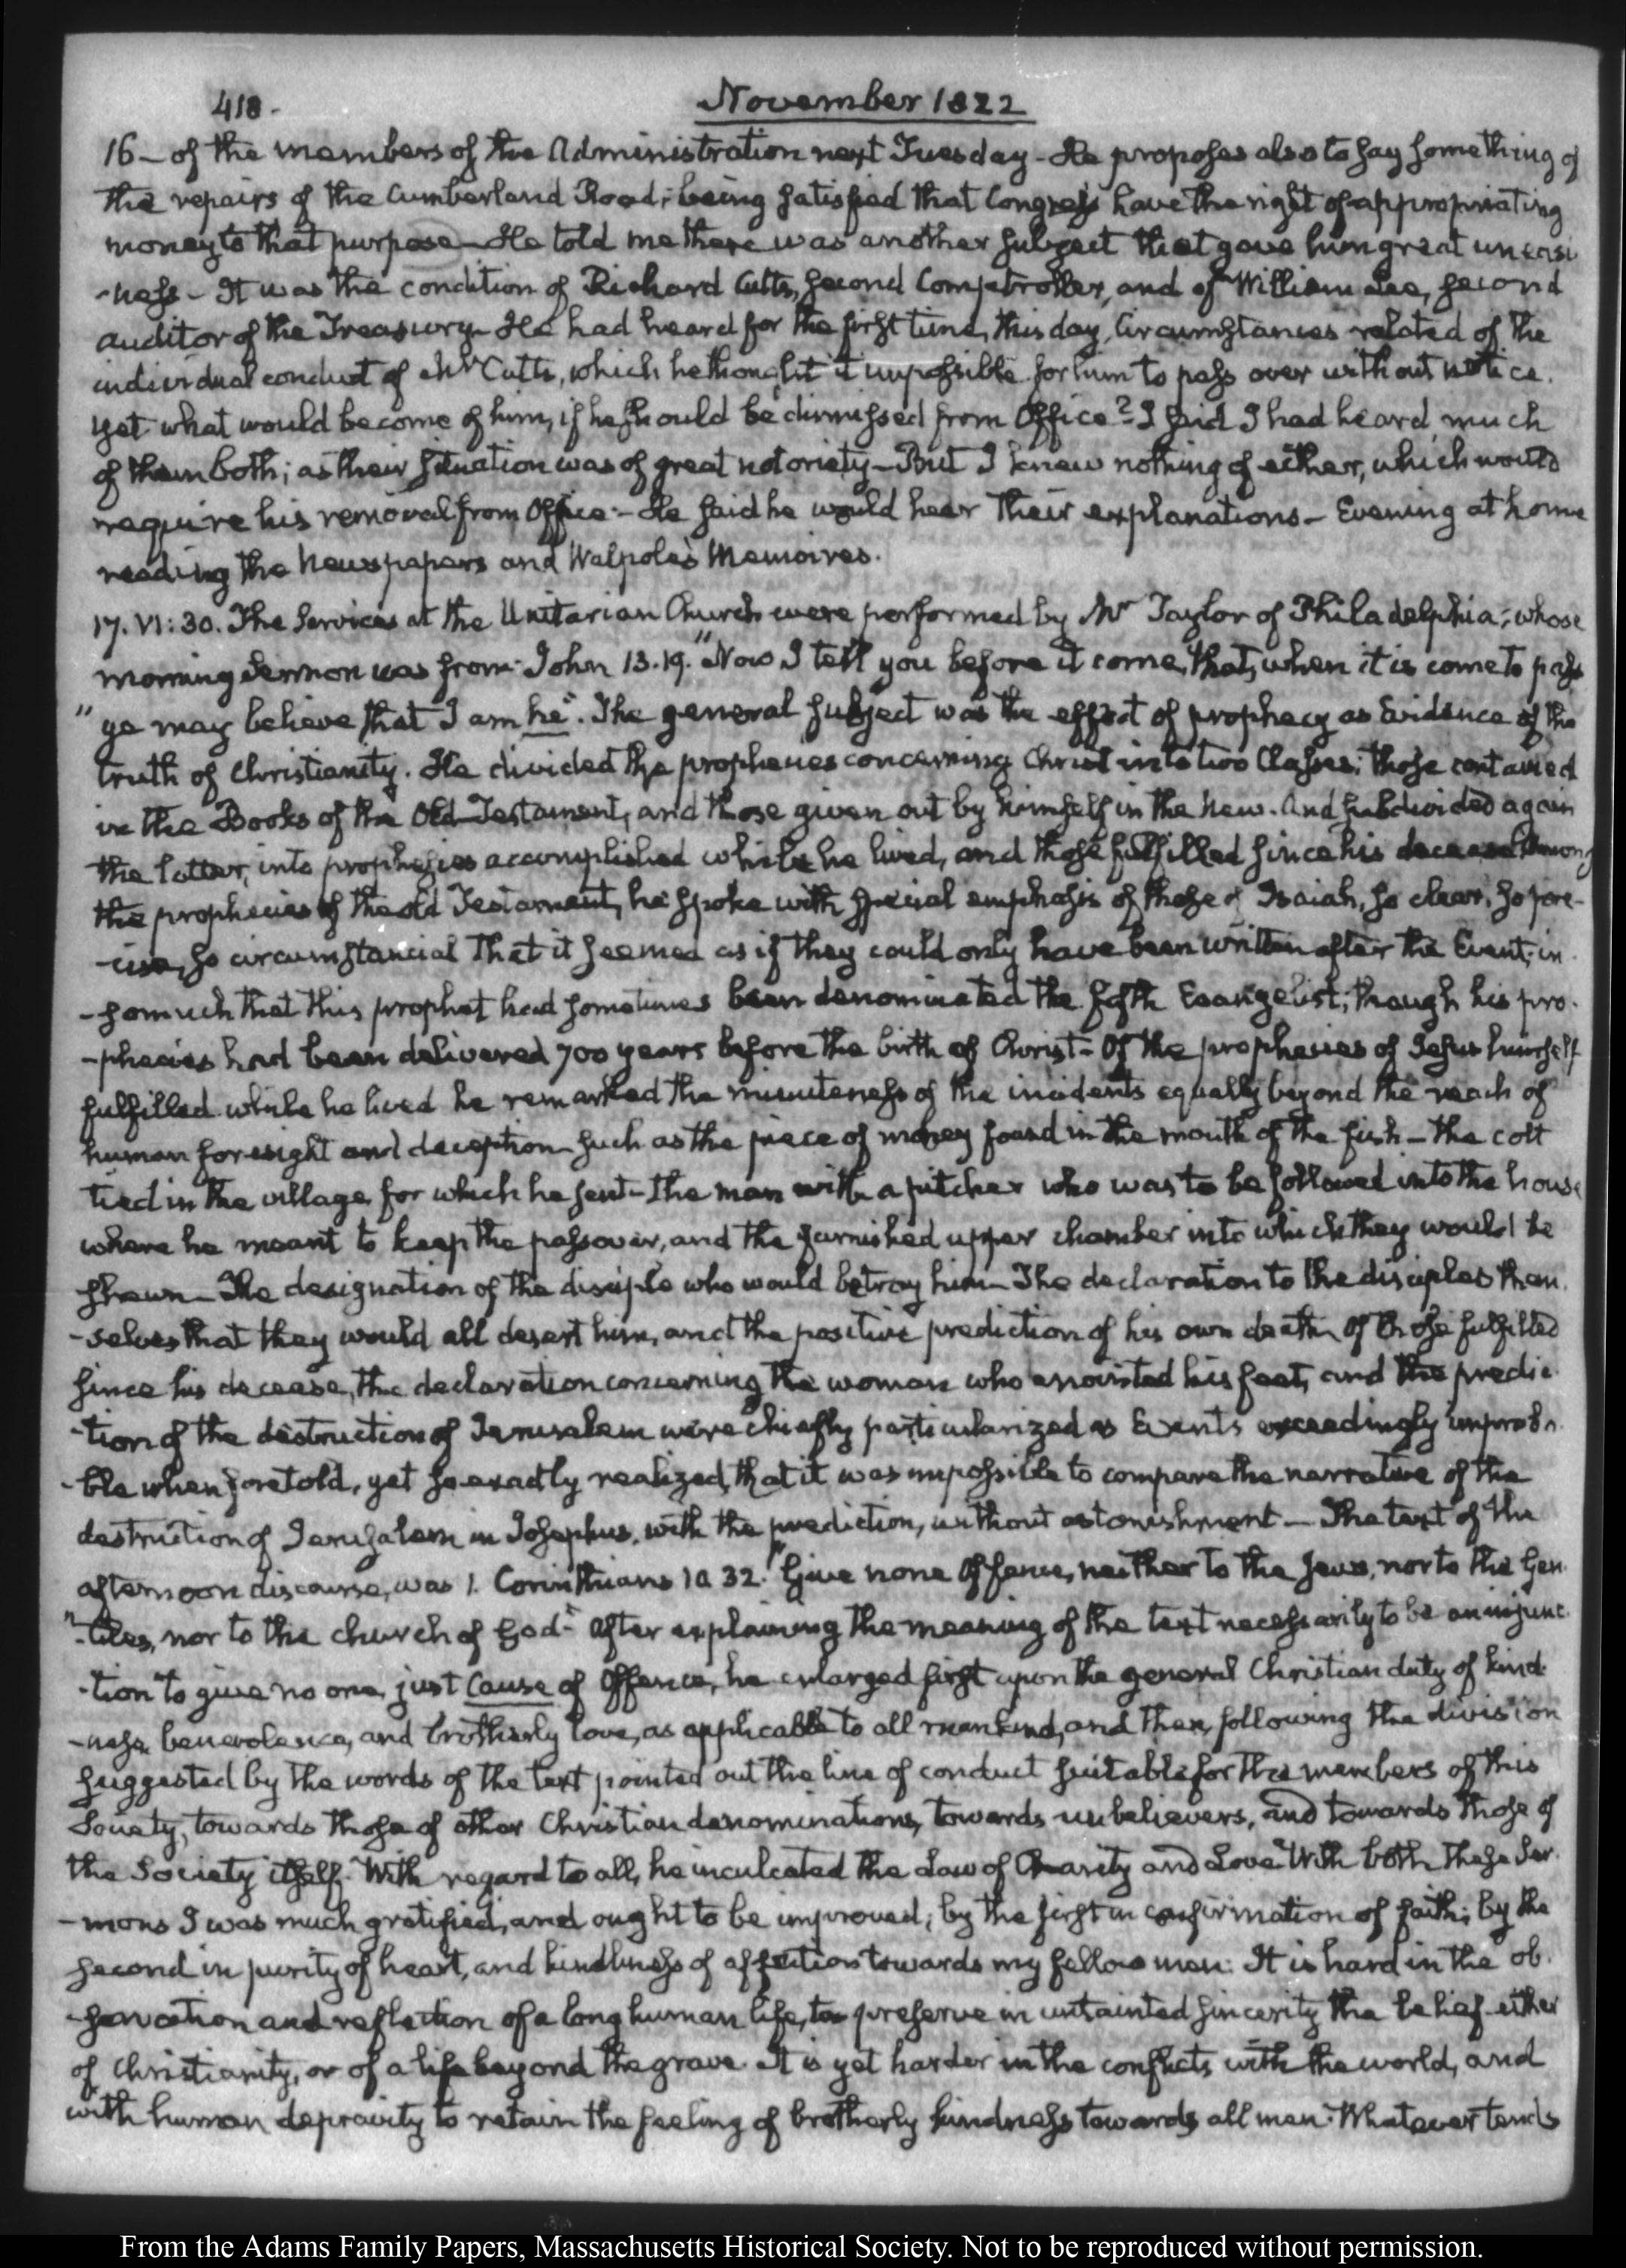 418.
November 1822
16 – of the members of the Administration next Tuesday – He proposes also to say something of
the repairs of the Cumberland Road; being satisfied that Congress have the right of appropriating
money to that purpose – He told me there was another subject that gave him great uneasi
-ness – It was the condition of Richard Cutts, second Comptroller, and of William Lee, second
auditor of the Treasury – He had heard for the first time, this day, circumstances related of the
individual conduct of Mr Cutts, which he thought it impossible for him to pass over without notice.
yet what would become of him, if he should be dismissed from Office? I said I had heard much
of them both; as their situation was of great notoriety – But I knew nothing of either, which would
require his removal from Office – He said he would hear their explanations – Evening at home
reading the Newspapers and Walpole's Memoires.
17. VI:30. The Services at the Unitarian Church were performed by Mr Taylor of Philadelphia; whose
morning Sermon was from John 13.19. "Now I tell you before it come, that, when it is come to pass
"ye may believe that I am he". The general subject was the effect of prophecy as Evidence of the
truth of Christianity. He divided the prophecies concerning Christ into two Classes; those contained
in the Books of the Old Testament, and those given out by himself in the New. And subdivided again
the latter, into prophecies accomplished while he lived, and those fulfilled since his decease. Among
the prophecies of the old Testament, he spoke with special emphasis of those of Isaiah, so clear, so pre-
-cise, so circumstancial that it seemed as if they could only have been written after the Event; in
-somuch that this prophet had sometimes been denominated the fifth Evangelist; though his pro-
-phecies had been delivered 700 years before the birth of Christ – Of the prophecies of Jesus himself
fulfilled while he lived he remarked the minuteness of the incidents equally beyond the reach of
human foresight and deception such as the piece of money found in the mouth of the fish – the colt
tied in the village for which he sent – the man with a pitcher who was to be followed into the house
where he meant to keep the passover, and the furnished upper chamber into which they would be
shewn – The designation of the disciple who would betray him – The declaration to the disciples them
-selves that they would all desert him, and the positive prediction of his own death. Of those fulfilled
since his decease, the declaration concerning the woman who anointed his feet, and the predic
-tion of the destruction of Jerusalem were chiefly particularized as Events exceedingly improba
-ble when foretold, yet so exactly realized, that it was impossible to compare the narrative of the
destruction of Jerusalem in Josephus, with the prediction, without astonishment – The text of the
afternoon discourse, was 1. Corinthians 10 32. "Give none Offence, neither to the Jews, nor to the Gen
"-tiles, nor to the church of God" After explaining the meaning of the text necessarily to be an injunc
-tion to give no one, just Cause of Offence, he enlarged first upon the general Christian duty of kind-
-ness, benevolence, and brotherly love, as applicable to all mankind, and then, following the division
suggested by the words of the text pointed out the line of conduct suitable for the members of this
Society, towards those of other Christian denominations, towards unbelievers, and towards those of
the Society itself. With regard to all, he inculcated the Law of Charity and Love. With both these Ser-
-mons I was much gratified, and ought to be improved; by the first in confirmation of faith; by the
second in purity of heart, and kindliness of affection towards my fellow men. It is hard in the ob-
-servation and reflection of a long human life, to preserve in untainted sincerity the belief either
of Christianity, or of a life beyond the grave. It is yet harder in the conflicts with the world, and
with human depravity to retain the feeling of brotherly kindness towards all men. Whatever tends
From the Adams Family Papers, Massachusetts Historical Society. Not to be reproduced without permission.